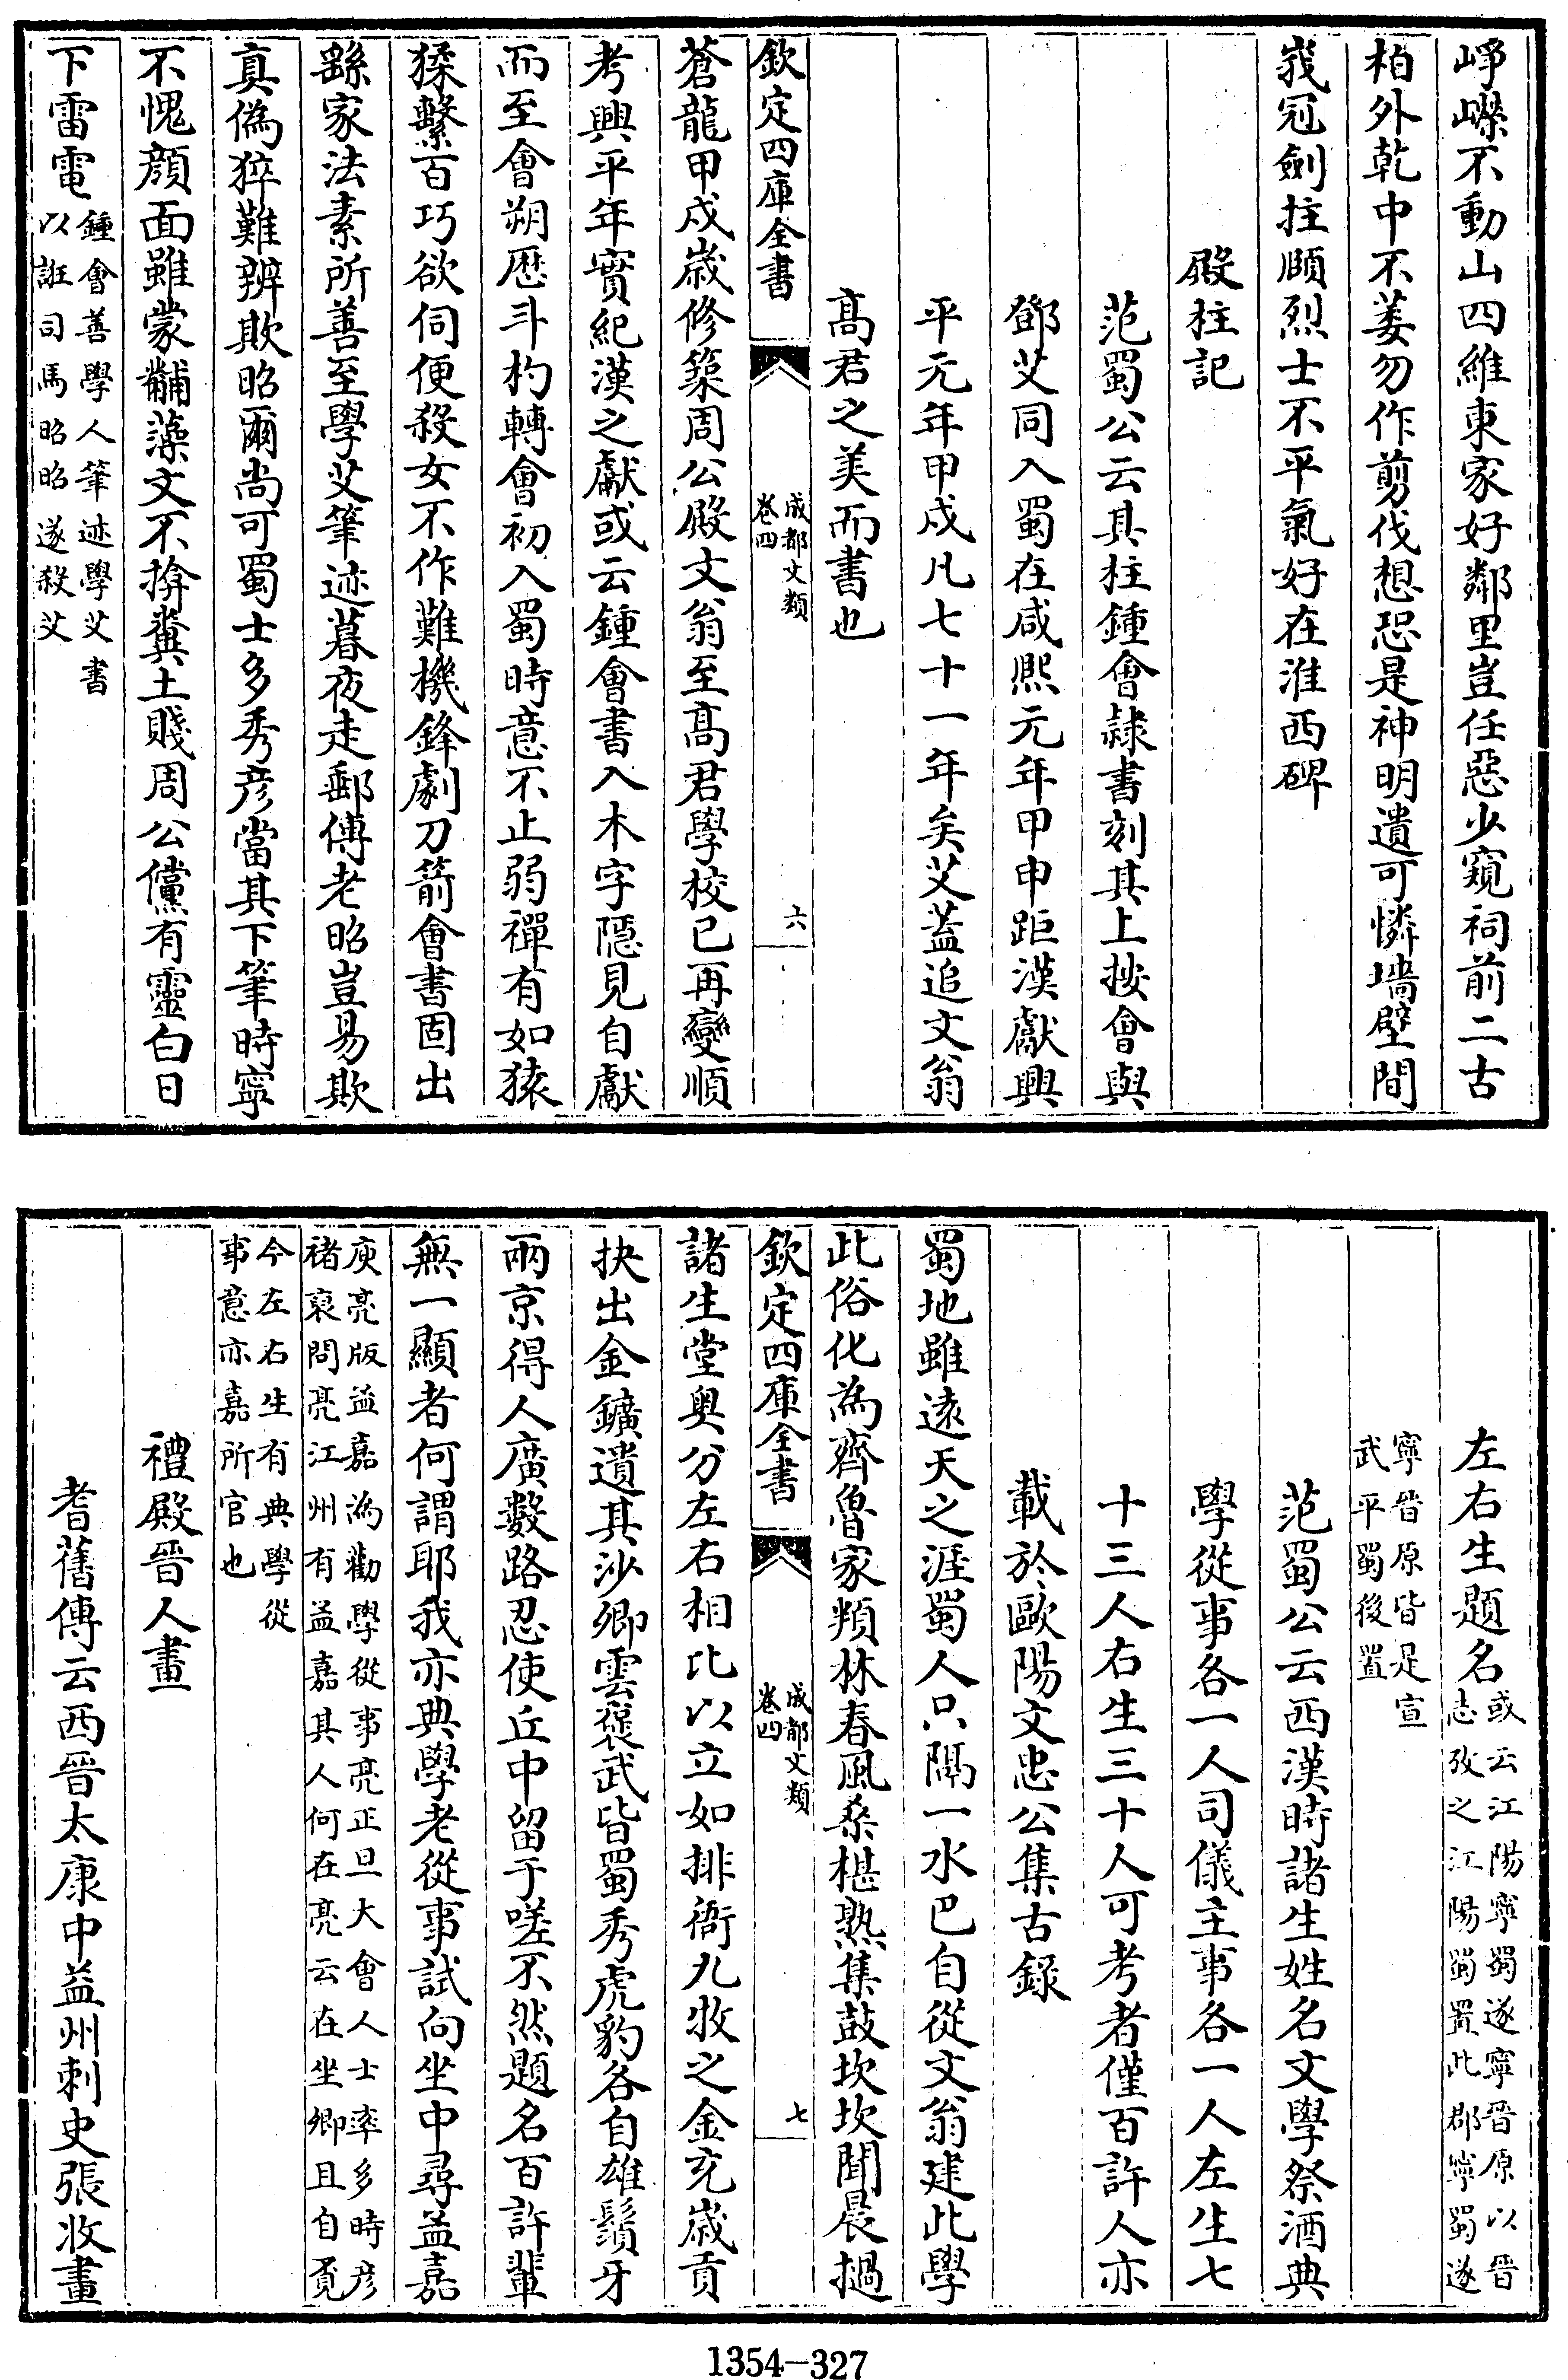 崢嶸不動山四維東家好鄰里豈任惡少窺祠前二古
柏外乾中不萎勿作剪伐想恐是神明遺可憐墻壁間
峩冠劍拄頤烈士不平氣好在淮西碑
殿柱記
范蜀公云其柱鍾會隸書刻其上按會與
鄧艾同入蜀在咸熙元年甲申距漢獻興
平元年甲戌凡七十一年矣艾蓋追文翁
高君之美而書也
欽定四庫全書
成都文類
卷四
六
蒼龍甲戌嵗修築周公殿文翁至高君學校已再變順
考興平年實紀漢之獻或云鍾會書入木字隱見自獻
而至會朔厯斗杓轉會初入蜀時意不止弱禪有如猿
猱繫百巧欲伺便殺女不作難機鋒劇刀箭會書固出
繇家法素所善至學艾筆迹暮夜走郵傳老昭豈易欺
真偽猝難辨欺昭爾尚可蜀士多秀彦當其下筆時寧
不愧顔面雖蒙黼藻文不揜糞土賤周公儻有靈白日
下雷電
鍾會善學人筆迹學艾書
以誑司馬昭昭遂殺艾
左右生題名
或云江陽寧蜀遂寧晉原以晉
志攷之江陽蜀置此郡寧蜀遂
寧晉原皆是宣
武平蜀後置
范蜀公云西漢時諸生姓名文學祭酒典
學從事各一人司儀主事各一人左生七
十三人右生三十人可考者僅百許人亦
載於歐陽文忠公集古錄
蜀地雖逺天之涯蜀人只隔一水巴自從文翁建此學
此俗化為齊魯家頖林春風桑椹熟集鼓坎坎聞晨撾
欽定四庫全書
成都文類
卷四
七
諸生堂奥分左右相比以立如排衙九牧之金充嵗貢
抉出金鑛遺其沙卿雲褒武皆蜀秀虎豹各自雄鬚牙
兩京得人廣數路忍使丘中留于嗟不然題名百許輩
無一顯者何謂耶我亦典學老從事試向坐中尋孟嘉
庾亮版孟嘉為勸學從事亮正旦大會人士率多時彦
褚裒問亮江州有孟嘉其人何在亮云在坐卿且自覓
今左右生有典學從
事意亦嘉所官也
禮殿晉人畫
耆舊傳云西晉太康中益州刺史張收畫
1354-327